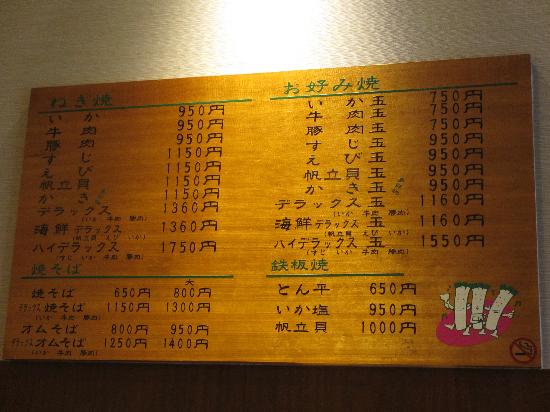 ねぎ焼
いか 950円
牛肉 950円
豚肉 950円
すじ 1150円
えび 1150円
帆立貝 1150円
かき 1150円
デラックス 1360円
(いか 牛肉 豚肉)
海鮮デラックス 1360円
(帆立貝 えび いか)
ハイデラックス 1750円
(すじ いか 牛肉 豚肉)
焼そば 大
焼そば 650円 800円
デラックス焼そば 1150円 1300円
(いか 牛肉 豚肉)
オムそば 800円 950円
デラックスオムそば 1250円 1400円
(いか 牛肉 豚肉)
お好み焼
いか玉 750円
牛肉玉 750円
豚肉玉 750円
すじ玉 950円
えび玉 950円
帆立貝玉 950円
かき玉 950円
デラックス玉 1160円
(いか 牛肉 豚肉)
海鮮デラックス玉 1160円
(帆立貝 えび いか)
ハイデラックス玉 1550円
(すじ いか 牛肉 豚肉)
鉄板焼
とん平 650円
いか塩 950円
帆立貝 1000円